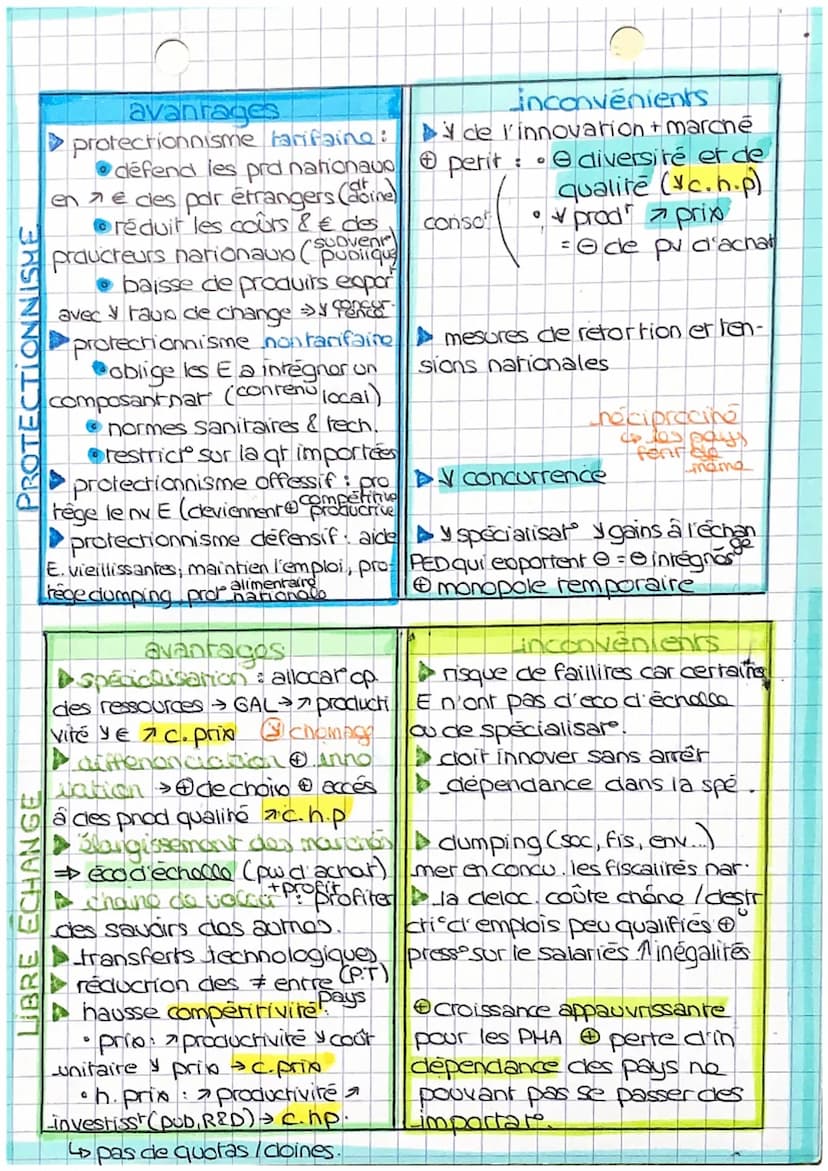 PROTECTIONNISME
avantages
protectionnisme tarifaire :
défend les prd nationaux
en ↗ € des pdr étrangers (dt doine)
réduit les coûts & € des
praucteurs nationaux (subvent° publique)
baisse de produits export
avec ↘ taux de change ⇒ ↘ concurrence
protectionnisme non tarifaire
oblige les E a intégrer un
composant nat° (contenu local)
normes sanitaires & tech.
restrict° sur la qt importées
protectionnisme offessif : pro
tège le nv E (deviennent ⊕ compétitive productive)
protectionnisme défensif : aide
E. vieillissantes, maintien l'emploi, pro-
tège dumping, prot° alimentaire nationale
inconvénients
↘ de l'innovation + marché
⊕ petit : • ⊖ diversité et de
qualité (↘ c.h.p)
conso°
• ↘ prod° ↗ prix
= ⊖ de pv d'achat
mesures de rétortion et ten-
sions nationales
réciprocité
↳ les pays
font de
même
↘ concurrence
↘ spécialisat° ↘ gains à l'échange
PED qui exportent ⊖ = ⊖ intégrés
⊕ monopole temporaire
LIBRE ÉCHANGE
avantages
spécialisation : allocat° op.
des ressources → GAL → ↗ producti
vité ↘ € ↗ c. prix ↘ chomage
différenciation ⊕ inno
vation → ⊕ de choix ⊕ accés
â des prod qualité ↗ c.h.p
élargissement des marchés
⇒ éco d'échelle (pv d'achat)
+ profit
chaine de valeur : profiter
des savoirs des autres.
transferts technologiques
réduction des ≠ entre pays (P.T)
hausse compétitivité :
• prix : ↗ productivité ↘ coût
unitaire ↘ prix → c.prix
• h. prix : ↗ productivité ↗
investisst (pub, R&D) → c.hp.
↳ pas de quotas / doines.
inconvénients
risque de faillites car certaine
E n'ont pas d'eco d'échelle
ou de spécialisat°.
doit innover sans arrêt
dépendance dans la spé.
dumping (soc, fis, env...)
met en concu. les fiscalités nat.
la deloc. coûte chône / destr
cti° d'emplois peu qualifiés ⊕
press° sur le salariés ↑ inégalités
⊕ croissance appauvrissante
pour les PMA ⊕ perte d'in
dépendance des pays ne
pouvant pas se passer des
importat°.